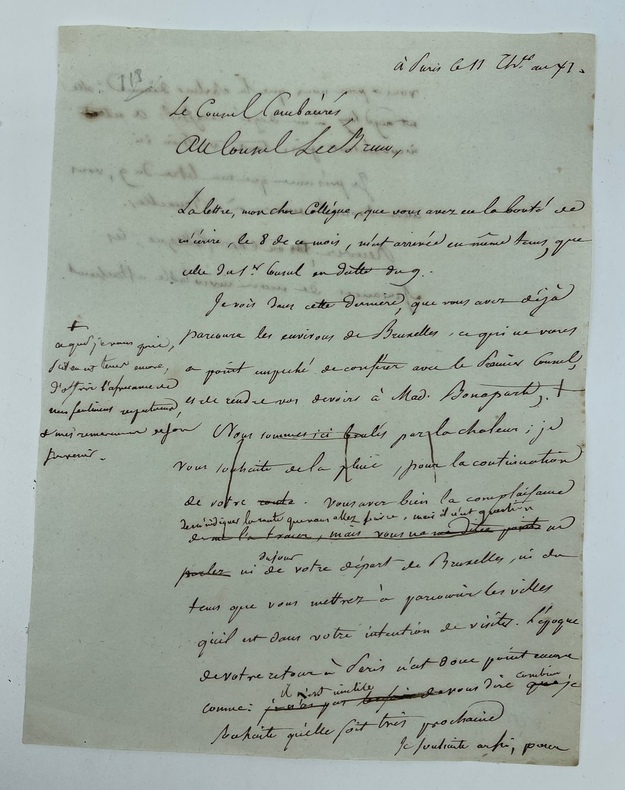 118
à Paris le 11 Th.or an XI.
Le Consul Cambacérès
Au Consul Le Brun,
La lettre, mon cher Collègue, que vous avez eu la bonté de
m'écrire, le 8 de ce mois, m'est arrivée en même tems, que
celle du 1er Consul en datte du 9.
Je vois dans cette dernière, que vous avez déjà
parcouru les environs de Bruxelles, ce qui ne vous
a point empêché de conférer avec le Premier Consul,
et de rendre vos devoirs à Mad. Bonaparte, +
+
à qui je vous prie,
s'il en est tems encore,
d'offrir l'assurance de
mes sentimens respectueux,
& mes remercimens de son
souvenir.
Nous sommes ici brulés par la chaleur; je
vous souhaite de la pluie, pour la continuation
de votre route. Vous avez bien la complaisance
de m'indiquer la route que vous allez suivre, mais il n'est question
de me la tracer, mais vous ne me dites point au
parlez ni du jour de votre départ de Bruxelles, ni du
tems que vous mettrez à parcourir les villes
qu'il est dans votre intention de visiter. L'époque
de votre retour à Paris n'est donc point encore
connue: il est inutile de vous dire combien que je
souhaite qu'elle soit très prochaine
Je souhaite aussi, pour